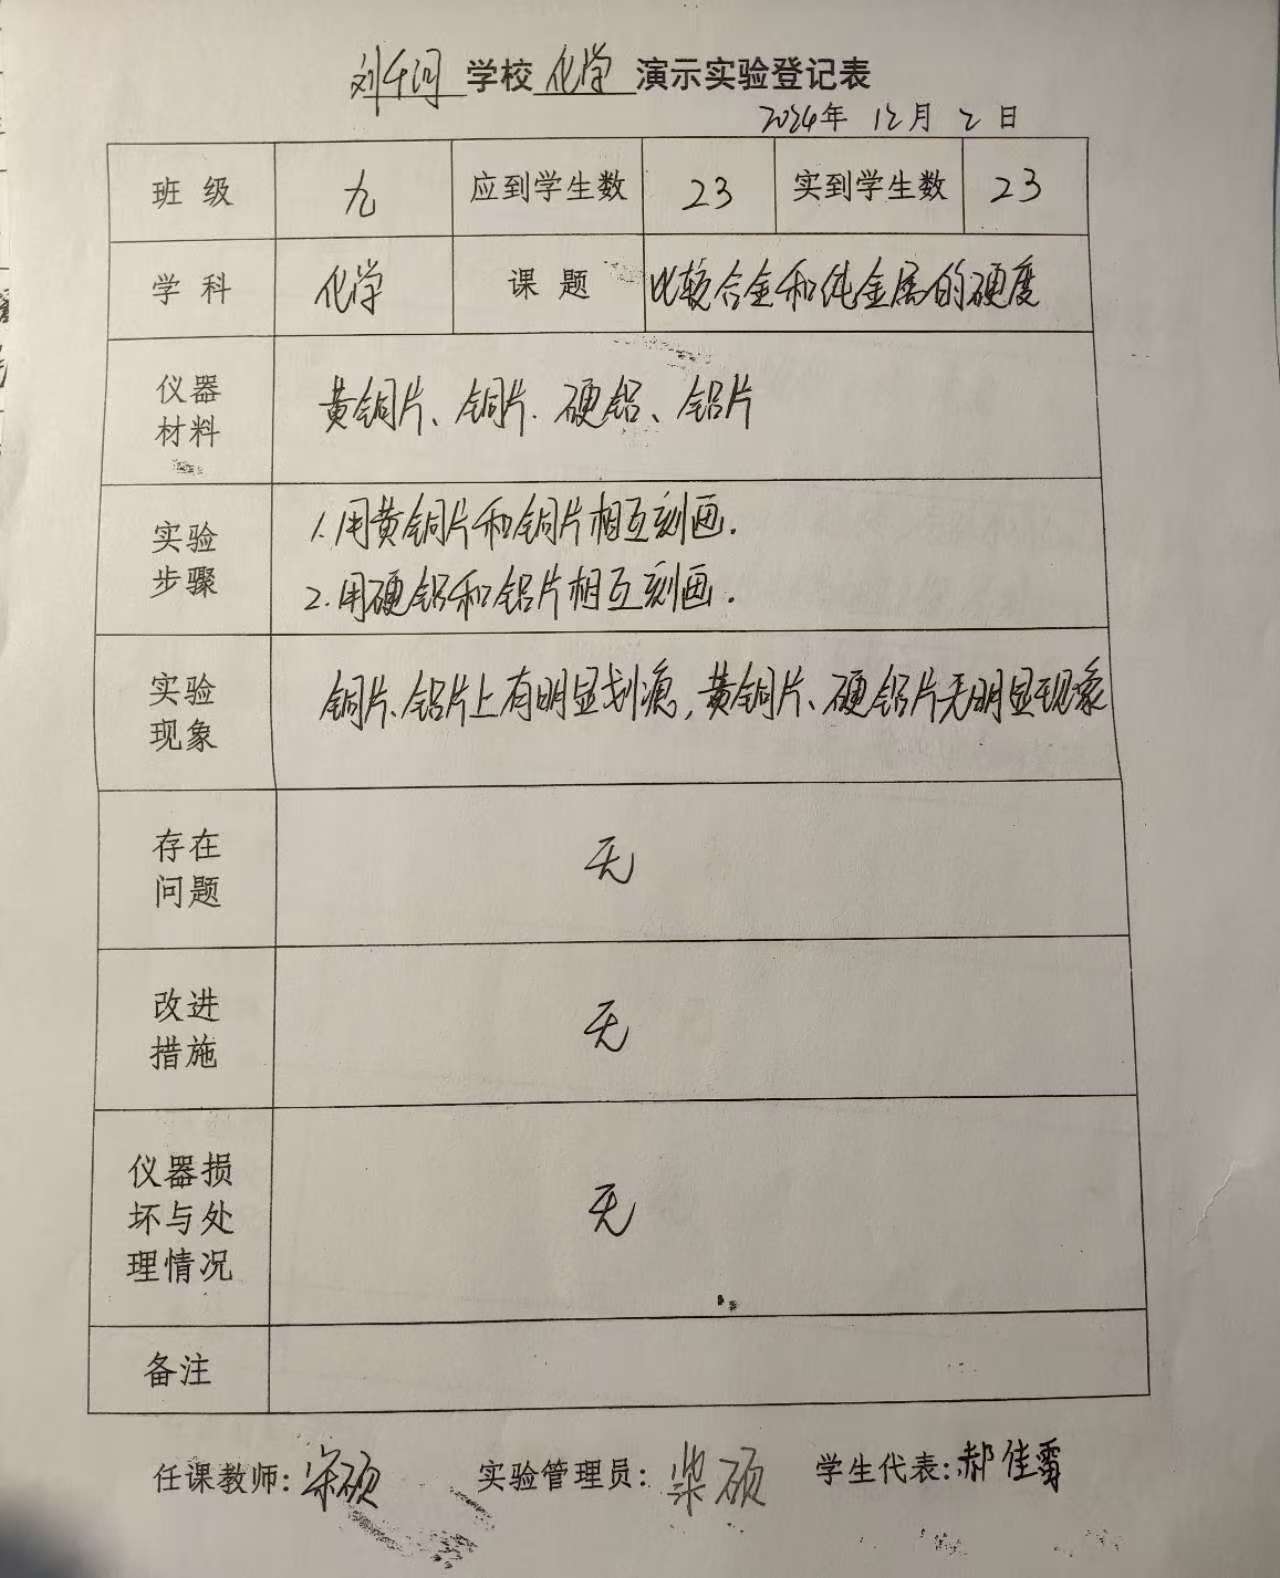 刘千河 学校 化学 演示实验登记表
2024年 12月 2日
班级 九 应到学生数 23 实到学生数 23
学科 化学 课题 比较合金和纯金属的硬度
仪器
材料
黄铜片、铜片.硬铝、铝片
实验
步骤
1.用黄铜片和铜片相互刻画.
2.用硬铝和铝片相互刻画.
实验
现象
铜片、铝片上有明显划痕,黄铜片、硬铝片无明显现象
存在
问题
无
改进
措施
无
仪器损
坏与处
理情况
无
备注
任课教师: 硕 实验管理员: 柴硕 学生代表:郝佳霈